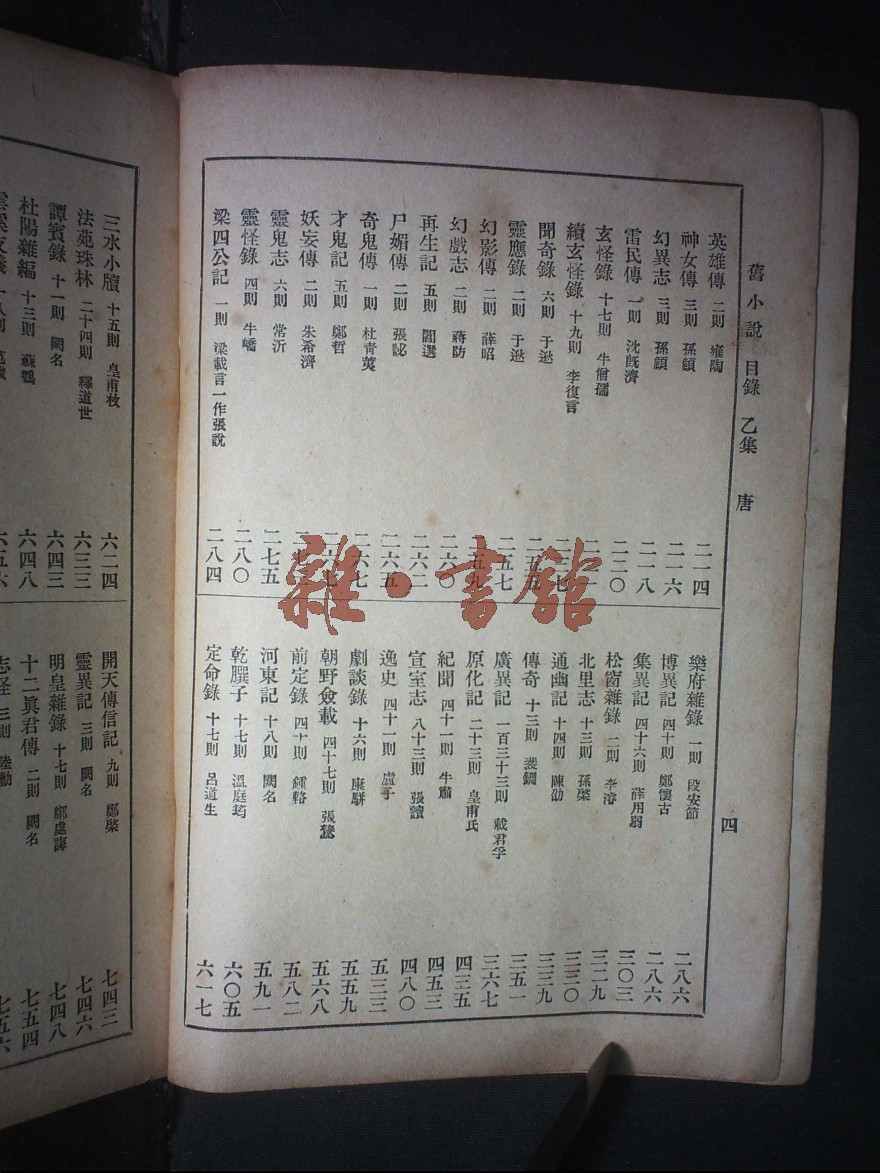 舊小說 目錄 乙集 唐 四
英雄傳 二則 雍陶 二一四
神女傳 三則 孫頠 二一六
幻異志 三則 孫頠 二一八
雷民傳 一則 沈既濟 二二〇
玄怪錄 十七則 牛僧孺
續玄怪錄 十九則 李復言
聞奇錄 六則 于逖
靈應錄 二則 于逖 二五七
幻影傳 二則 薛昭
幻戲志 二則 蔣防 二六〇
再生記 五則 閻選 二六二
尸媚傳 二則 張泌 二六五
奇鬼傳 一則 杜青荑 二六七
才鬼記 五則 鄭哲
妖妄傳 二則 朱希濟
靈鬼志 六則 常沂 二七五
靈怪錄 四則 牛嶠 二八〇
梁四公記 一則 梁載言一作張說 二八四
樂府雜錄 一則 段安節 二八六
博異記 四十則 鄭懷古 二八六
集異記 四十六則 薛用弱 三〇三
松窗雜錄 二則 李濬 三二九
北里志 十三則 孫棨 三三〇
通幽記 十四則 陳劭 三三九
傳奇 十三則 裴鉶 三五一
廣異記 一百三十三則 戴君孚 三六七
原化記 二十三則 皇甫氏 四三五
紀聞 四十一則 牛肅 四五三
宣室志 八十三則 張讀 四八〇
逸史 四十一則 盧子 五三三
劇談錄 十六則 康駢 五五九
朝野僉載 四十七則 張鷟 五六八
前定錄 四十則 鍾輅 五八二
河東記 十八則 闕名 五九一
乾𦠆子 十七則 溫庭筠 六〇五
定命錄 十七則 呂道生 六一七
三水小牘 十五則 皇甫枚 六二四
法苑珠林 二十四則 釋道世 六三三
譚賓錄 十一則 闕名 六四三
杜陽雜編 十三則 蘇鶚 六四八
雲溪友議 十八則 范攄 六五六
開天傳信記 九則 鄭棨 七四三
靈異記 三則 闕名 七四六
明皇雜錄 十七則 鄭處誨 七四八
十二眞君傳 二則 闕名 七五四
志怪 三則 陸勳 七五六
雜·書館